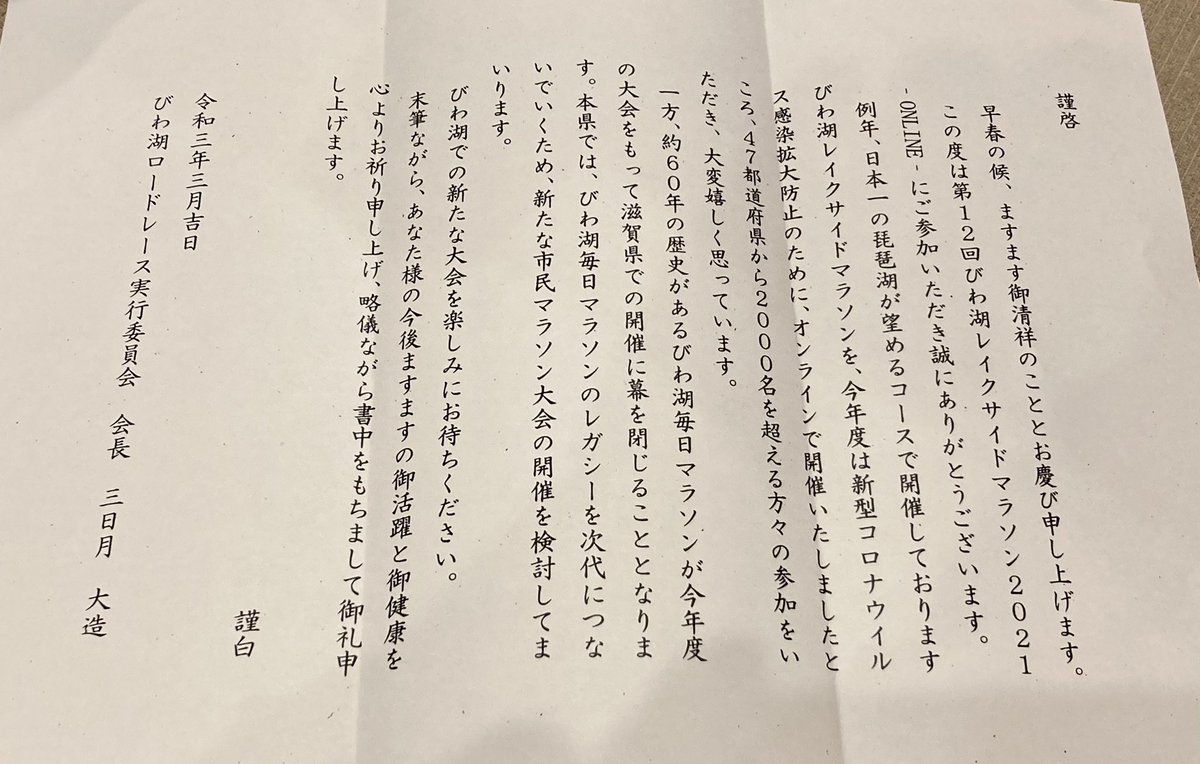 謹啓
早春の候、ますます御清祥のこととお慶び申し上げます。
この度は第12回びわ湖レイクサイドマラソン2021
- ONLINE - にご参加いただき誠にありがとうございます。
例年、日本一の琵琶湖が望めるコースで開催しております
びわ湖レイクサイドマラソンを、今年度は新型コロナウイル
ス感染拡大防止のために、オンラインで開催いたしましたと
ころ、47都道府県から2000名を超える方々の参加をい
ただき、大変嬉しく思っています。
一方、約60年の歴史があるびわ湖毎日マラソンが今年度
の大会をもって滋賀県での開催に幕を閉じることとなりま
す。本県では、びわ湖毎日マラソンのレガシーを次代につな
いでいくため、新たな市民マラソン大会の開催を検討してま
いります。
びわ湖での新たな大会を楽しみにお待ちください。
末筆ながら、あなた様の今後ますますの御活躍と御健康を
心よりお祈り申し上げ、略儀ながら書中をもちまして御礼申
し上げます。
謹白
令和三年三月吉日
びわ湖ロードレース実行委員会 会長 三日月 大造